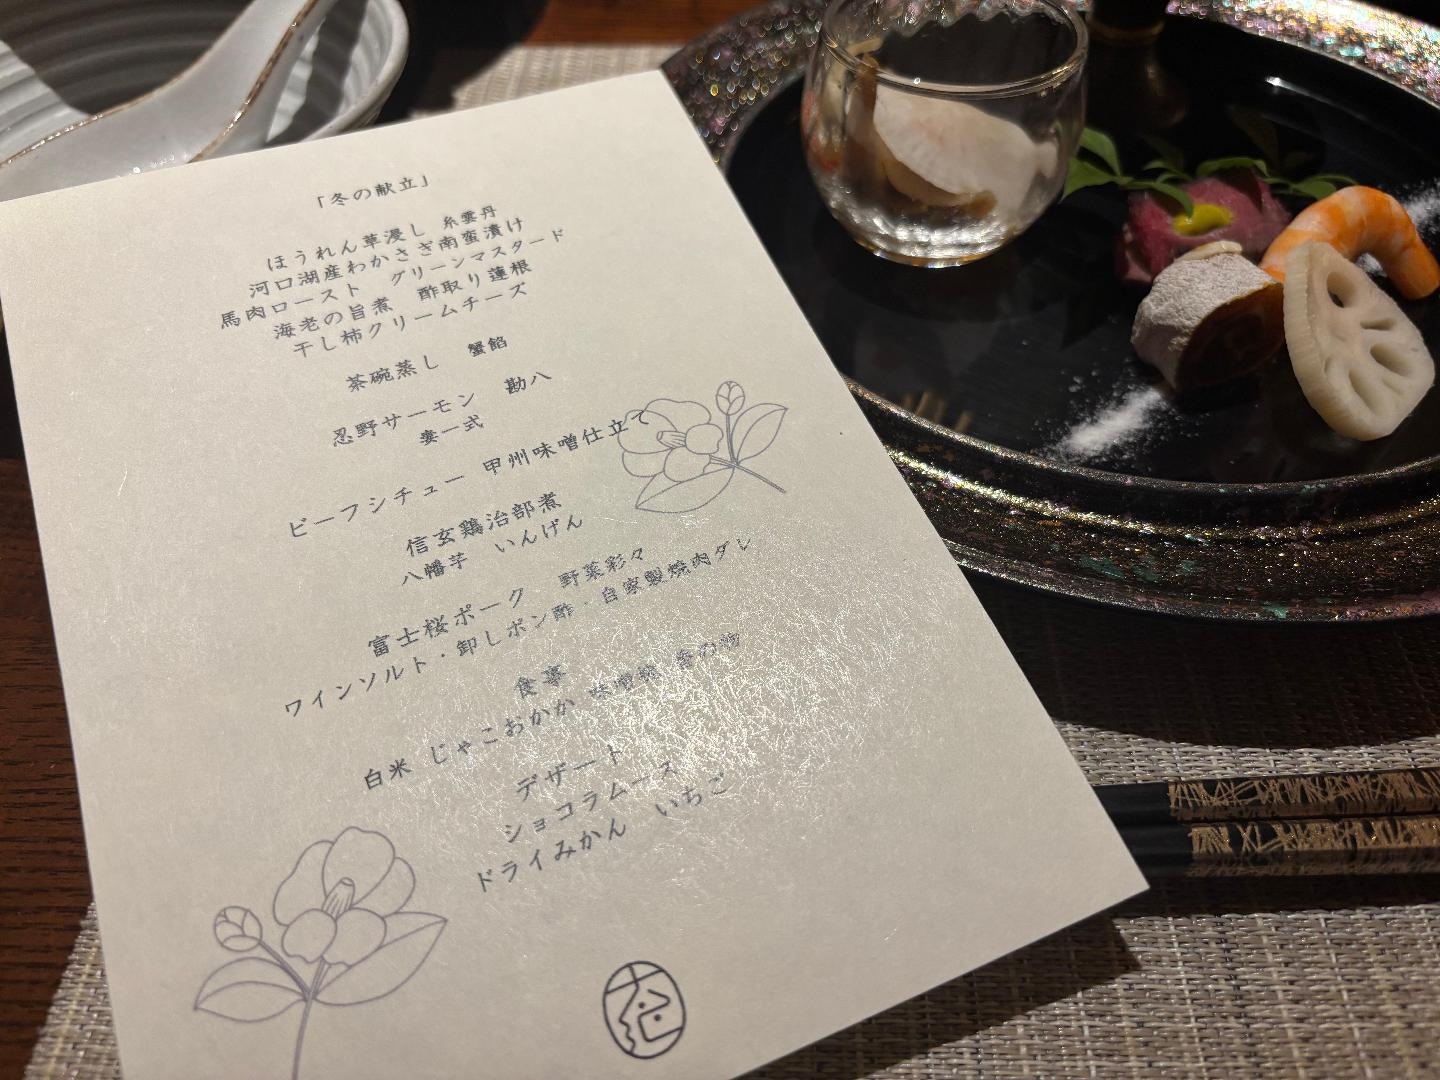 「冬の献立」
ほうれん草浸し 糸雲丹
河口湖産わかさぎ南蛮漬け
馬肉ロースト グリーンマスタード
海老の旨煮 酢取り蓮根
干し柿クリームチーズ
茶碗蒸し 蟹餡
忍野サーモン 勘八
妻一式
ビーフシチュー 甲州味噌仕立て
信玄鶏治部煮
八幡芋 いんげん
富士桜ポーク 野菜彩々
ワインソルト・卸しポン酢・自家製焼肉ダレ
食事
白米 じゃこおかか 味噌椀 香の物
デザート
ショコラムース
ドライみかん いちご